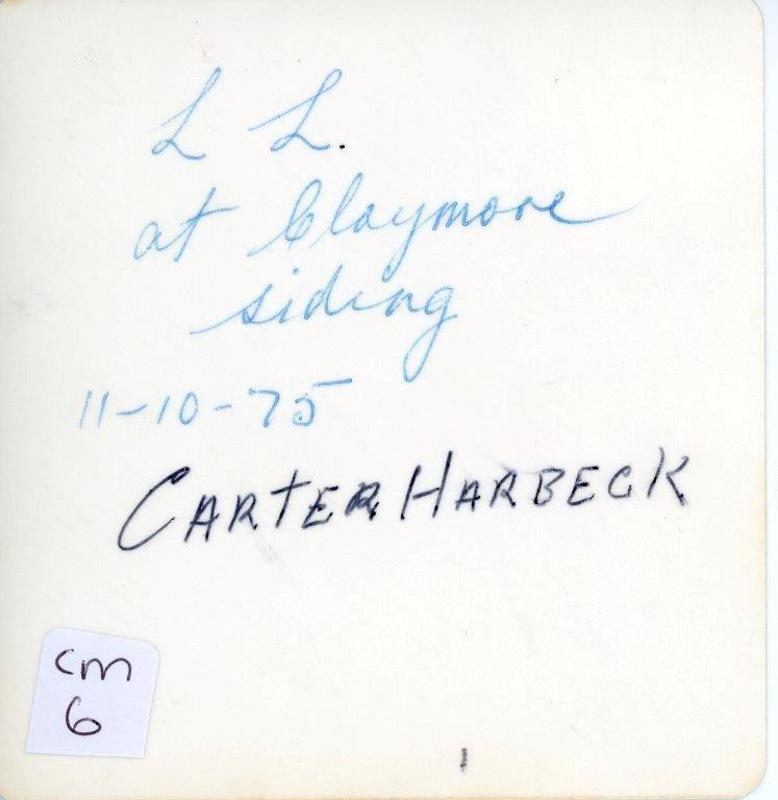 L L.
at Claymore
siding
11-10-75
CARTER HARBECK
cm
6